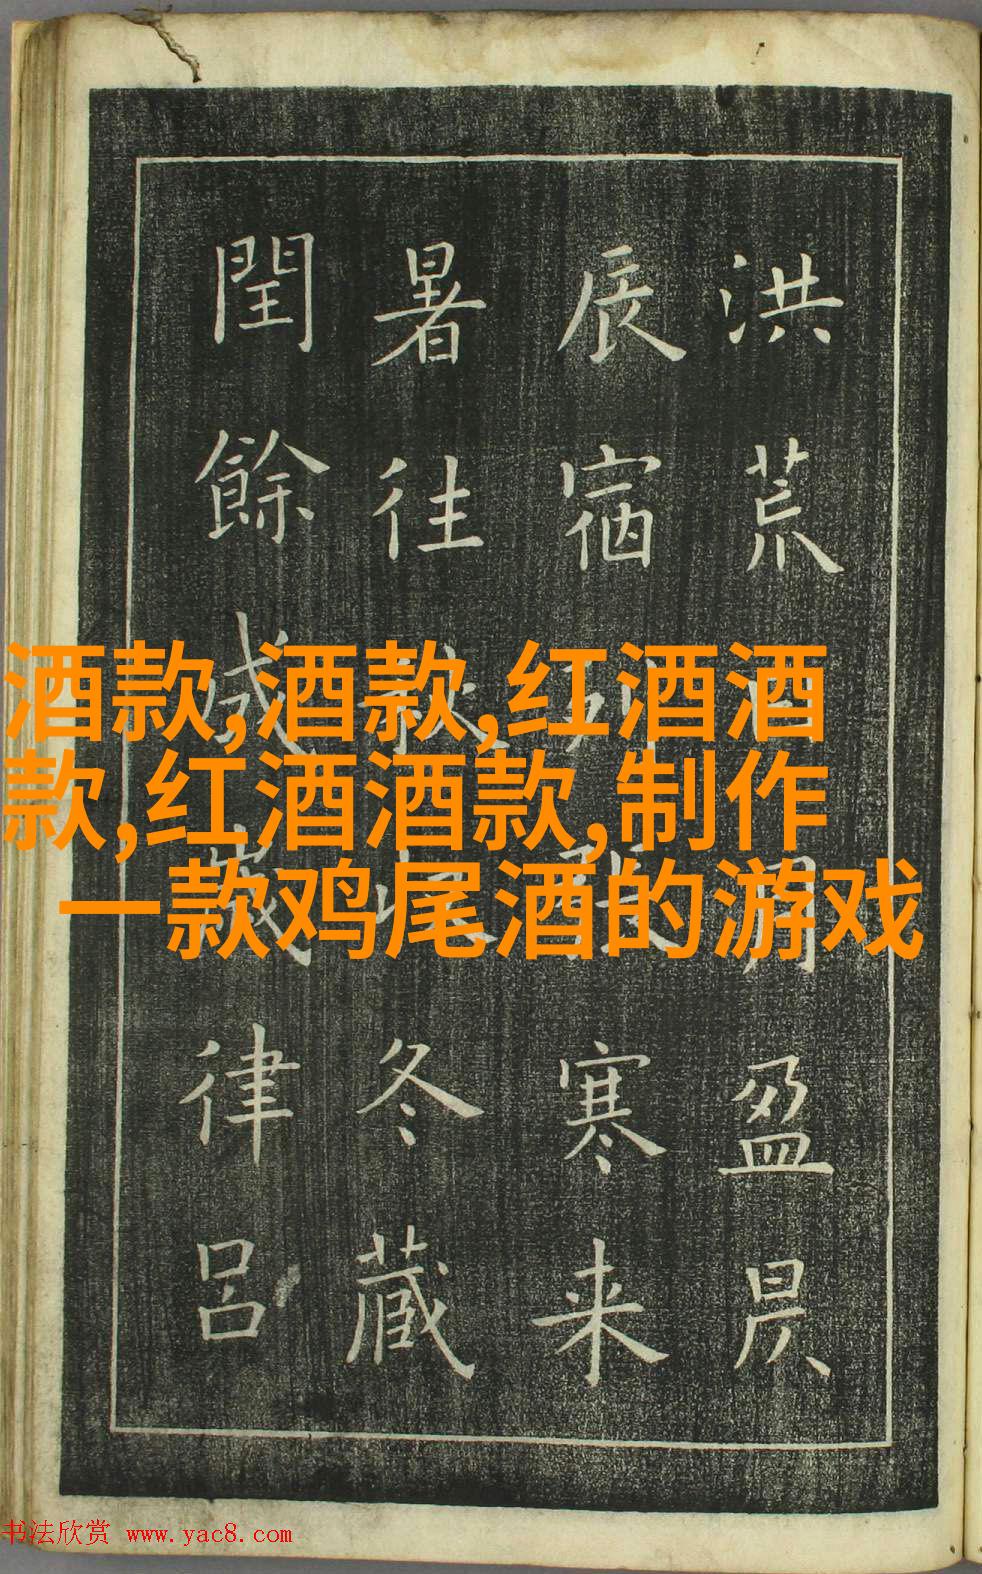 洪荒月盈昃
辰宿列寒来
暑往秋冬藏
閏餘成歲律呂
酒款,酒款,红酒酒
款,红酒酒款,制作
一款鸡尾酒的游戏
书法欣赏 www.yac8.com